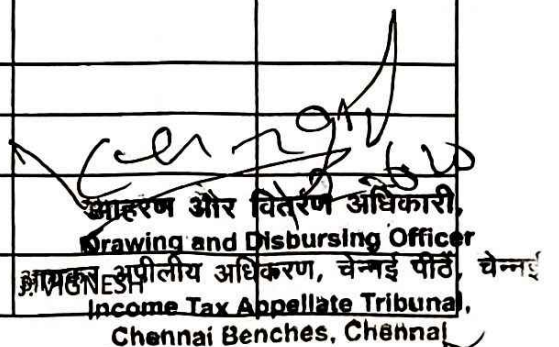 आहरण और वितरण अधिकारी,
Drawing and Disbursing Officer
आयकर अपीलीय अधिकरण, चेन्नई पीठें, चेन्नई
VIGNESH
Income Tax Appellate Tribunal,
Chennai Benches, Chennai